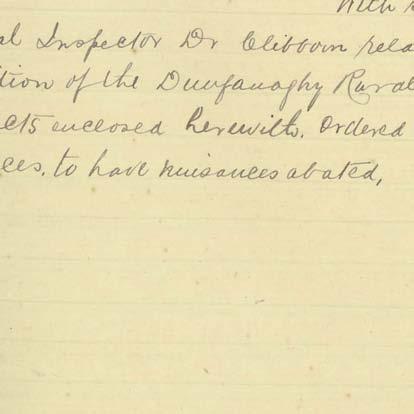 With
al Inspector Dr Clibborn rela
ition of the Dunfanaghy Rural
ects enclosed herewith. Ordered
ces, to have nuisances abated,